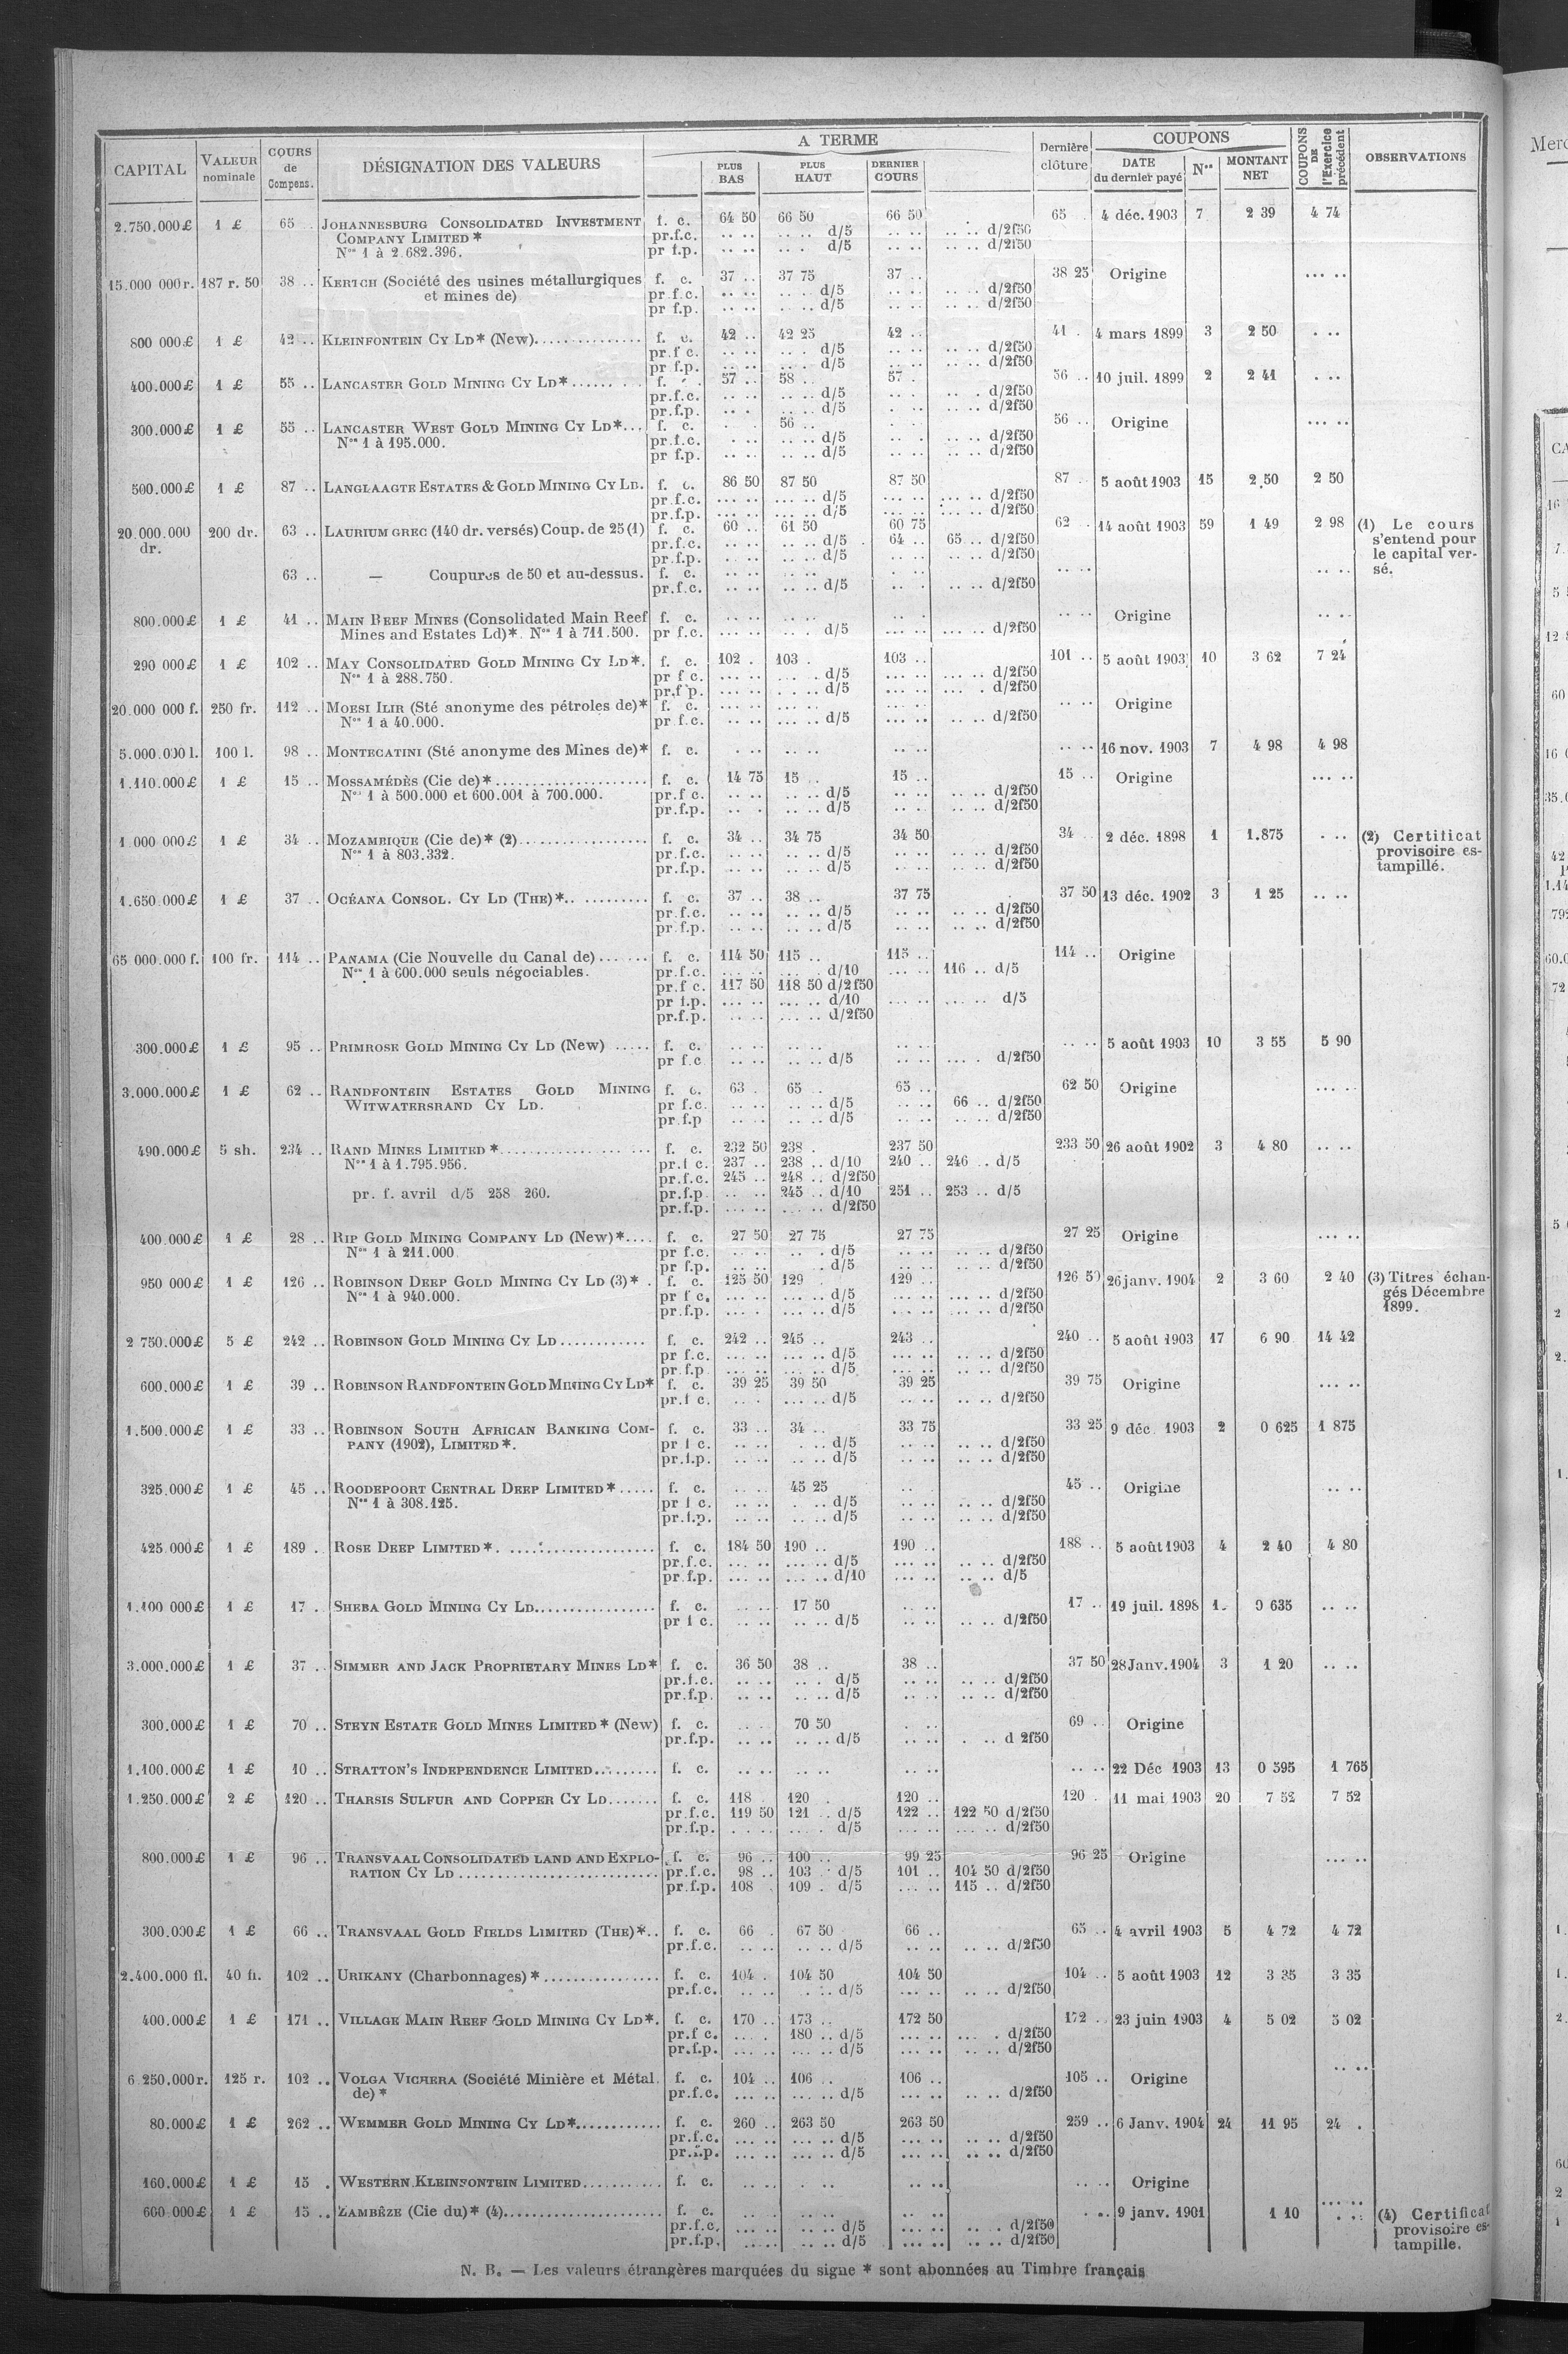 CAPITAL | VALEUR nominale | COURS de Compens. | DÉSIGNATION DES VALEURS | A TERME | PLUS BAS | PLUS HAUT | DERNIER COURS | Dernière clôture | COUPONS | DATE du dernier payé | Nos | MONTANT NET | COUPONS DE l'Exercice précédent | OBSERVATIONS
2.750.000£ 1 £ 65 .. JOHANNESBURG CONSOLIDATED INVESTMENT f. c. 64 50 66 50 66 50 65 . 4 déc. 1903 7 2 39 4 74
COMPANY LIMITED * pr.f.c. .. .. .. .. d/5 .. .. .. .. d/2f50
Nos 1 à 2.682.396. pr f.p. .. .. .. .. d/5 .. .. .. .. d/2f50
15.000 000r. 187 r. 50 38 .. KERTCH (Société des usines métallurgiques f. c. 37 .. 37 75 37 .. 38 25 Origine ... ..
et mines de) pr f.c. .. .. .. .. d/5 .. .. .. .. d/2f50
pr f.p. .. .. .. .. d/5 .. .. .. .. d/2f50
800 000£ 1 £ 42 .. KLEINFONTEIN CY LD* (New)............... f. c. 42 .. 42 25 42 .. 41 . 4 mars 1899 3 2 50 . ..
pr.f c. .. .. .. . d/5 .. .. .. .. d/2f50
pr f.p. .. .. .. .. d/5 .. .. .. .. d/2f50
400.000£ 1 £ 55 .. LANCASTER GOLD MINING CY LD*........ f. . 57 .. 58 .. 57 . 56 .. 10 juil. 1899 2 2 41 . ..
pr.f.c. .. .. .. .. d/5 .. . .. . d/2f50
pr.f.p. .. . .. .. d/5 . .. .. .. d/2f50
300.000£ 1 £ 55 .. LANCASTER WEST GOLD MINING CY LD*... f. c. 56 .. 56 .. Origine ... ..
Nos 1 à 195.000. pr.f.c. . .. .. .. d/5 .. .. .. .. d/2f50
pr f.p. .. .. .. .. d/5 .. .. .. .. d/2f50
500.000£ 1 £ 87 .. LANGLAAGTE ESTATES & GOLD MINING CY LD. f. c. 86 50 87 50 87 50 87 . 5 août 1903 15 2.50 2 50
pr.f.c. ... .. ... .. d/5 ... .. ... .. d/2f50
pr.f.p. ... .. ... .. d/5 ... .. ... .. d/2f50
20.000.000 200 dr. 63 .. LAURIUM GREC (140 dr. versés) Coup. de 25 (1) f. c. 60 .. 61 50 60 75 62 . 14 août 1903 59 1 49 2 98 (1) Le cours
dr. pr.f.c. .. .. .. .. d/5 64 .. 65 .. d/2f50 s'entend pour
pr.f.p. .. .. .. .. d/5 .. .. .. .. d/2f50 le capital ver-
63 .. — Coupures de 50 et au-dessus. f. c. .. .. .. .. . .. .. .. .. .. sé.
pr.f.c. .. .. .. .. d/5 .. . .. .. d/2f50
800.000£ 1 £ 41 .. MAIN REEF MINES (Consolidated Main Reef f. c. .. .. .. .. .. . .. .. Origine .. ..
Mines and Estates Ld)*. Nos 1 à 711.500. pr f.c. ... .. .. . d/5 ... .. ... .. d/2f50
290 000£ 1 £ 102 .. MAY CONSOLIDATED GOLD MINING CY LD*. f. c. 102 . 103 . 103 .. 101 .. 5 août 1903 10 3 62 7 24
Nos 1 à 288.750. pr f c. ... .. ... . d/5 ... .. ... .. d/2f50
pr.f p. ... .. . .. .. d/5 ... .. ... . d/2f50
20.000 000 f. 250 fr. 112 .. MOESI ILIR (Sté anonyme des pétroles de)* f. c. ... .. .. .. ... .. .. .. Origine
Nos 1 à 40.000. pr f.c. .. .. ... .. d/5 ... .. .. .. d/2f50
5.000.000 l. 100 l. 98 .. MONTECATINI (Sté anonyme des Mines de)* f. c. . .. .. .. .. .. .. .. 16 nov. 1903 7 4 98 4 98
1.110.000£ 1 £ 15 .. MOSSAMÉDÈS (Cie de)*..................... f. c. 14 75 15 .. 15 .. 15 .. Origine ... ..
Nos 1 à 500.000 et 600.001 à 700.000. pr.f c. .. .. .. .. d/5 .. .. .. .. d/2f50
pr.f.p. .. .. .. .. d/5 .. . .. .. d/2f50
1.000 000£ 1 £ 34 .. MOZAMBIQUE (Cie de)* (2).................. f. c. 34 .. 34 75 34 50 34 . 2 déc. 1898 1 1.875 . .. (2) Certificat
Nos 1 à 803.332. pr.f.c. .. .. .. .. d/5 .. .. .. .. d/2f50 provisoire es-
pr.f.p. .. .. .. .. d/5 .. .. .. .. d/2f50 tampillé.
1.650.000£ 1 £ 37 .. OCÉANA CONSOL. CY LD (THE)*.. ......... f. c. 37 .. 38 .. 37 75 37 50 13 déc. 1902 3 1 25 .. ..
pr.f.c. .. .. .. .. d/5 .. .. .. .. d/2f50
pr.f.p. .. .. .. .. d/5 .. .. .. .. d/2f50
65 000.000 f. 100 fr. 114 .. PANAMA (Cie Nouvelle du Canal de)....... f. c. 114 50 115 .. 115 .. 114 .. Origine
Nos 1 à 600.000 seuls négociables. pr.f.c. ... .. ... . d/10 ... .. 116 .. d/5
pr.f c. 117 50 118 50 d/2f50
pr f.p. ... .. ... .. d/10 ... .. ... .. d/5
pr.f.p. .. .. ... .. d/2f50
300.000£ 1 £ 95 .. PRIMROSE GOLD MINING CY LD (New) ..... f. c. .. .. .. .. .. .. .. .. 5 août 1903 10 3 55 5 90
pr f.c .. .. .. .. d/5 .. .. ... . d/2f50
3.000.000£ 1 £ 62 .. RANDFONTEIN ESTATES GOLD MINING f. c. 63 . 65 .. 65 .. 62 50 Origine ... ..
WITWATERSRAND CY LD. pr f.c. .. .. .. .. d/5 .. .. 66 .. d/2f50
pr f.p .. .. .. .. d/5 .. .. d/2f50
490.000£ 5 sh. 234 .. RAND MINES LIMITED *................... f. c. 232 50 238 . 237 50 233 50 26 août 1902 3 4 80 .. ..
Nos 1 à 1.795.956. pr.f c. 237 .. 238 .. d/10 240 .. 246 .. d/5
pr.f.c. 245 .. 248 .. d/2f50
pr. f. avril d/5 258 260. pr.f.p. .. .. 245 .. d/10 251 .. 253 .. d/5
pr.f.p. ... .. ... .. d/2f50
400.000£ 1 £ 28 .. RIP GOLD MINING COMPANY LD (New)*.... f. c. 27 50 27 75 27 75 27 25 Origine ... ..
Nos 1 à 211.000 pr f.c. .. .. .. . d/5 .. .. .. .. d/2f50
pr f.p. .. .. . d/5 .. .. .. .. d/2f50
950 000£ 1 £ 126 .. ROBINSON DEEP GOLD MINING CY LD (3)* . f. c. 125 50 129 . 129 .. 126 50 26 janv. 1904 2 3 60 2 40 (3) Titres échan-
Nos 1 à 940.000. pr f c. ... .. ... .. d/5 ... .. .. .. d/2f50 gés Décembre
pr.f.p. ... . ... .. d/5 ... .. .. .. d/2f50 1899.
2 750.000£ 5 £ 242 .. ROBINSON GOLD MINING CY LD............ f. c. 242 .. 245 .. 243 .. 240 .. 5 août 1903 17 6 90 14 42
pr f.c. ... .. ... .. d/5 ... .. .. .. d/2f50
pr f.p ... .. ... .. d/5 ... .. .. .. d/2f50
600.000£ 1 £ 39 .. ROBINSON RANDFONTEIN GOLD MINING CY LD* f. c. 39 25 39 50 39 25 39 75 Origine ... ..
pr.f c. .. . ... .. d/5 .. .. .. .. d/2f50
1.500.000£ 1 £ 33 .. ROBINSON SOUTH AFRICAN BANKING COM- f. c. 33 .. 34 .. 33 75 33 25 9 déc. 1903 2 0 625 1 875
PANY (1902), LIMITED*. pr f c. .. .. . .. d/5 .. .. .. .. d/2f50
pr.f.p. .. .. .. .. d/5 .. .. .. .. d/2f50
325.000£ 1 £ 45 .. ROODEPOORT CENTRAL DEEP LIMITED*..... f. c. .. . 45 25 .. 45 .. Origine .. ..
Nos 1 à 308.125. pr f c. .. .. . .. d/5 .. .. .. .. d/2f50
pr.f.p. .. .. .. .. d/5 .. .. .. .. d/2f50
425.000£ 1 £ 189 . ROSE DEEP LIMITED*. .................... f. c. 184 50 190 .. 190 .. 188 .. 5 août 1903 4 2 40 4 80
pr.f.c. ... .. ... .. d/5 ... .. .. .. d/2f50
pr.f.p. ... .. ... .. d/10 ... .. .. .. d/5
1.100 000£ 1 £ 17 . SHEBA GOLD MINING CY LD................. f. c. .. . 17 50 .. .. 17 .. 19 juil. 1898 1. 0 635 .. ..
pr f c. .. .. .. .. d/5 .. .. .. .. d/2f50
3.000.000£ 1 £ 37 .. SIMMER AND JACK PROPRIETARY MINES LD* f. c. 36 50 38 .. 38 .. 37 50 28 Janv. 1904 3 1 20 .. ..
pr.f.c. .. .. .. . d/5 .. .. .. .. d/2f50
pr.f.p. .. .. .. .. d/5 .. .. .. .. d/2f50
300.000£ 1 £ 70 .. STEYN ESTATE GOLD MINES LIMITED* (New) f. c. .. . 70 50 . .. 69 .. Origine
pr.f.p. .. .. .. .. d/5 .. .. . .. d 2f50
1.100.000£ 1 £ 10 .. STRATTON'S INDEPENDENCE LIMITED......... f. c. .. .. .. .. .. .. .. .. 22 Déc 1903 13 0 595 1 765
1.250.000£ 2 £ 120 .. THARSIS SULFUR AND COPPER CY LD....... f. c. 118 . 120 . 120 .. 120 . 11 mai 1903 20 7 52 7 52
pr.f.c. 119 50 121 .. d/5 122 .. 122 50 d/2f50
pr.f.p. . . .. ... . d/5 ... .. ... .. d/2f50
800.000£ 1 £ 96 .. TRANSVAAL CONSOLIDATED LAND AND EXPLO- f. c. 96 .. 100 .. 99 25 96 25 Origine ... ..
RATION CY LD ........................... pr.f.c. 98 .. 103 . d/5 101 .. 104 50 d/2f50
pr.f.p. 108 . 109 . d/5 ... .. 115 .. d/2f50
300.000£ 1 £ 66 .. TRANSVAAL GOLD FIELDS LIMITED (THE)*.. f. c. 66 . 67 50 66 .. 65 .. 4 avril 1903 5 4 72 4 72
pr.f.c. .. .. .. .. d/5 .. .. .. .. d/2f50
2.400.000 fl. 40 fl. 102 .. URIKANY (Charbonnages) *................ f. c. 104 . 104 50 104 50 104 .. 5 août 1903 12 3 35 3 35
pr.f.c. .. .. . .. d/5 ... .. .. .. d/2f50
400.000£ 1 £ 171 .. VILLAGE MAIN REEF GOLD MINING CY LD*. f. c. 170 .. 173 .. 172 50 172 .. 23 juin 1903 4 5 02 5 02
pr.f c. ... . 180 .. d/5 ... .. ... . d/2f50
pr.f.p. ... .. ... .. d/5 ... .. .. .. d/2f50
6 250.000r. 125 r. 102 .. VOLGA VICHERA (Société Minière et Métal. f. c. 104 .. 106 .. 106 .. 105 .. Origine .. ..
de) * pr.f.c. ... .. ... .. d/5 ... .. .. .. d/2f50
80.000£ 1 £ 262 .. WEMMER GOLD MINING CY LD*............ f. c. 260 .. 263 50 263 50 259 .. 6 Janv. 1904 24 11 95 24 .
pr.f.c. ... .. ... .. d/5 ... .. .. .. d/2f50
pr.f.p. ... .. ... .. d/5 ... .. .. .. d/2f50
160.000£ 1 £ 15 . WESTERN KLEINFONTEIN LIMITED........... f. c. .. .. . .. .. .. .. . Origine
600 000£ 1 £ 15 .. ZAMBÈZE (Cie du)* (4)...................... f. c. .. .. .. .. .. .. . .. 9 janv. 1901 1 10 (4) Certificat
pr.f.c. ... .. .. .. d/5 ... .. .. . d/2f50 provisoire es-
pr.f.p. ... .. .. .. d/5 ... .. .. .. d/2f50 tampille.
N. B. — Les valeurs étrangères marquées du signe * sont abonnées au Timbre français